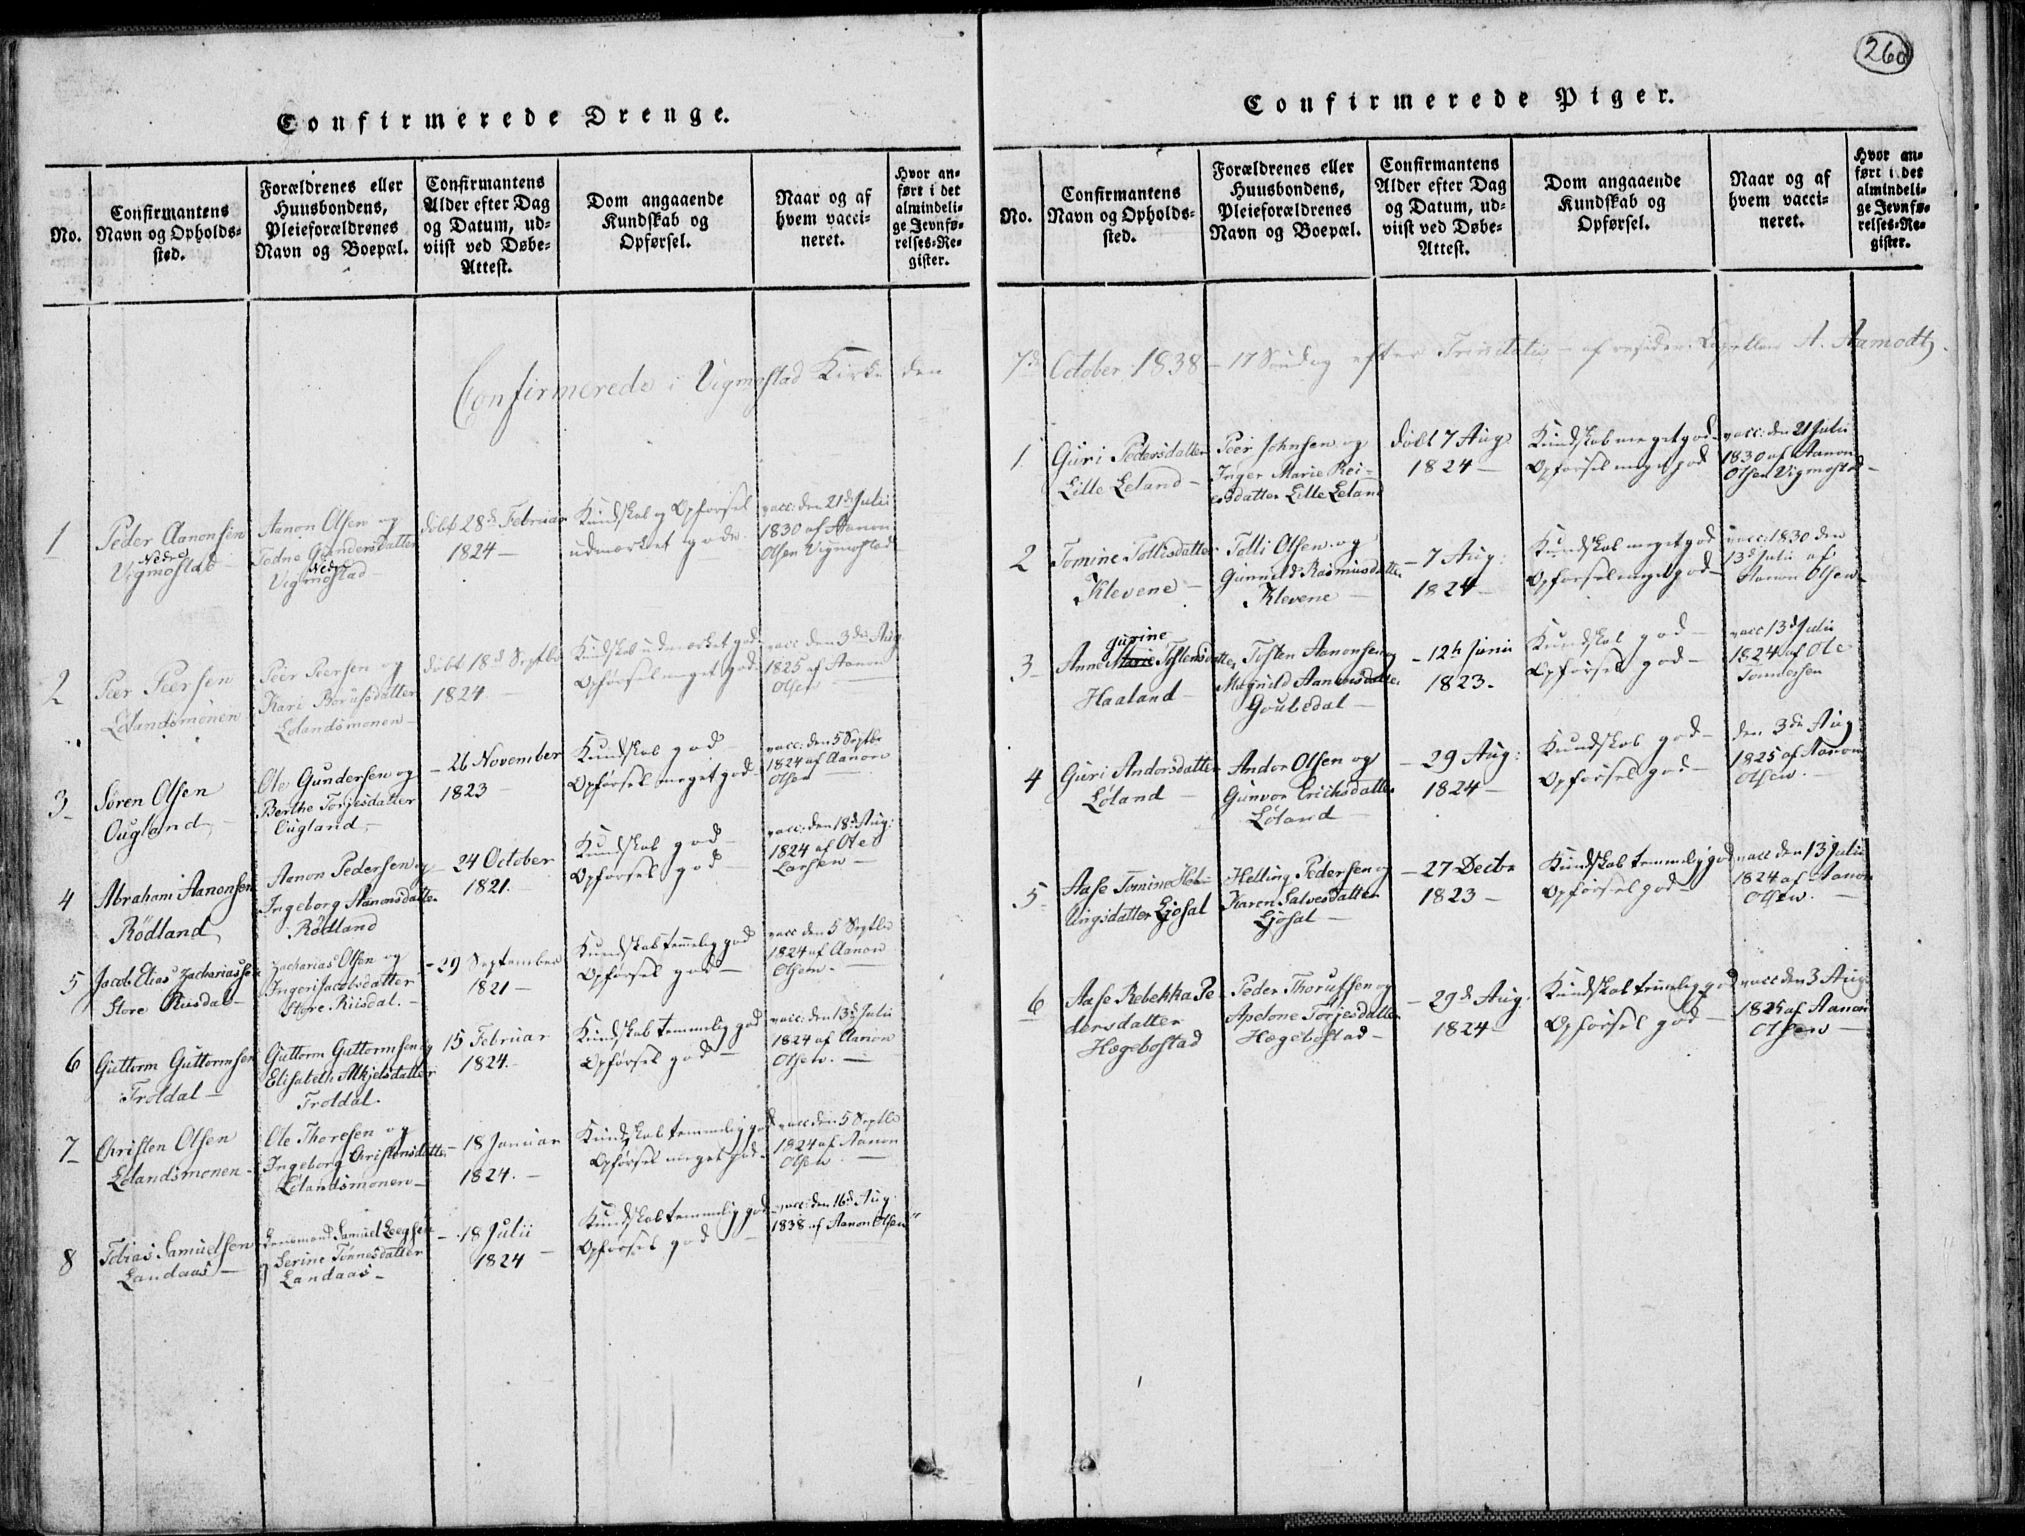 260
Confirmerede Drenge.
No.
Confirmantens
Navn og Opholds-
sted.
Forældrenes eller
Huusbondens,
Pleieforældrenes
Navn og Boepæl.
Confirmantens
Alder efter Dag
og Datum, ud-
viist ved Døbe-
Attest.
Dom angaaende
Kundskab og
Opførsel.
Naar og af
hvem vacci-
neret.
Hvor an-
ført i det
almindeli-
ge Jevnfø-
relses-Re-
gister.
Confirmerede i Vigmostad Kirke den
1
Peder Aanonsen
Nedre
Vigmostad
Aanon Olsen og
Todne Gundersdatter
Nedre
Vigmostad
döbt 28d Februar
1824
Kundskab og Opförsel
udmærket gode
vacc: den 21d Julii
1830 af Aanon
Olsen Vigmostad
2
Peer Peersen
Lölandsmonen
Peer Peersen og
Kari Borufsdatter
Lölandsmonen
döbt 18d Septbr
1824
Kundskab udmærket god
Opförsel meget god
vacc den 3die Aug.
1825 af Aanon
Olsen
3
Sören Olsen
Ougland
Ole Gundersen og
Berthe Torjesdatter
Ougland
- 26 November
1823
Kundskab god
Opförsel meget god
vacc: den 5 Septbr
1824 af Aanon
Olsen
4
Abraham Aanonsen
Rödland
Aanon Pedersen og
Ingeborg Aanonsdatter
Rödland
- 24 October
1821.
Kundskab god
Opförsel god
vacc: den 18d Aug:
1824 af Ole
Larsen
5
Jacob Elias Zachariassen
Store Riisdal
Zacharias Olsen og
Ingeri Jacobsdatter
Store Riisdal.
- 29 September
1821
Kundskab temmelig god
Opförsel god
vacc den 5 Septbr
1824 af Aanon
Olsen.
6
Guttorm Guttormsen
Troldal
Guttorm Guttormsen og
Elisabeth Alkjelsdatter
Troldal.
15 Februar
1824.
Kundskab temmelig god
Opförsel god
vacc: den 13d Julii
1824 af Aanon
Olsen.
7
Christen Olsen
Lölandsmonen
Ole Thoresen og
Ingeborg Christensdatter
Lölandsmonen
- 18 Januar
1824.
Kundskab temmelig god
Opförsel meget god
vacc den 5 Septbr
1824 af Aanon
Olsen
8
Tobias Samuelsen
Landaas
Samuel
og Serine Tönnesdatter
Landaas
- 18 Julii
1824
Kundskab temmelig god
Opförsel god
vacc: den 16d Aug
1838 af Aanon Olsen
Confirmerede Piger.
No.
Confirmantens
Navn og Opholds-
sted.
Forældrenes eller
Huusbondens,
Pleieforældrenes
Navn og Boepæl.
Confirmantens
Alder efter Dag
og Datum, ud-
viist ved Døbe-
Attest.
Dom angaaende
Kundskab og
Opførsel.
Naar og af
hvem vacci-
neret.
Hvor an-
ført i det
almindeli-
ge Jevnfø-
relses-Re-
gister.
7de October 1838 - 17 Söndag efter Trinitatis - af resider: Capellan A. Aamodt.
1
Guri Pedersdatter
Lille Leland
Peer Johnsen og
Inger Marie Rei-
ersdatter Lille Leland
döbt 7 Aug
1824
Kundskab meget god
Opförsel meget god
vacc: den 21 Julii
1830 af Aanon
Olsen Vigmostad
2
Tomine Tollisdatter
Klevene
Tolli Olsen og
Gunnild Rasmusdatter
Klevene
- 7 Aug:
1824
Kundskab meget god
Opförsel meget god
vacc: 1830 den
13d Julii af
Aanon Olsen
3
gurine
Anne Marie Tostensdatter
Haaland
Tosten Aanonsen og
Magnild Aanonsdatter
Goubedal
- 12te Junii
1823.
Kundskab god
Opförsel god
vacc 13d Julii
1824 af Ole
Tommesen
4
Guri Andorsdatter
Löland
Andor Olsen og
Gunvor Erichsdatter
Löland
- 29 Aug:
1824
Kundskab god
Opförsel god
den 3die Aug
1825 af Aanon
Olsen.
5
Aase Tomine Hel-
lingsdatter Ljosal
Helling Pedersen og
Karen Salvesdatter
Ljosal
- 27 Decbr
1823
Kundskab temmelig god
Opförsel god
vacc den 13 Julii
1824 af Aanon
Olsen.
6
Aase Rebekka Pe
dersdatter
Hægebostad
Peder Thorufsen og
Apelone Torjesdatter
Hægebostad
- 29d Aug.
1824
Kundskab temmelig god
Opförsel god
vacc den 3 Aug
1825 af Aanon
Olsen